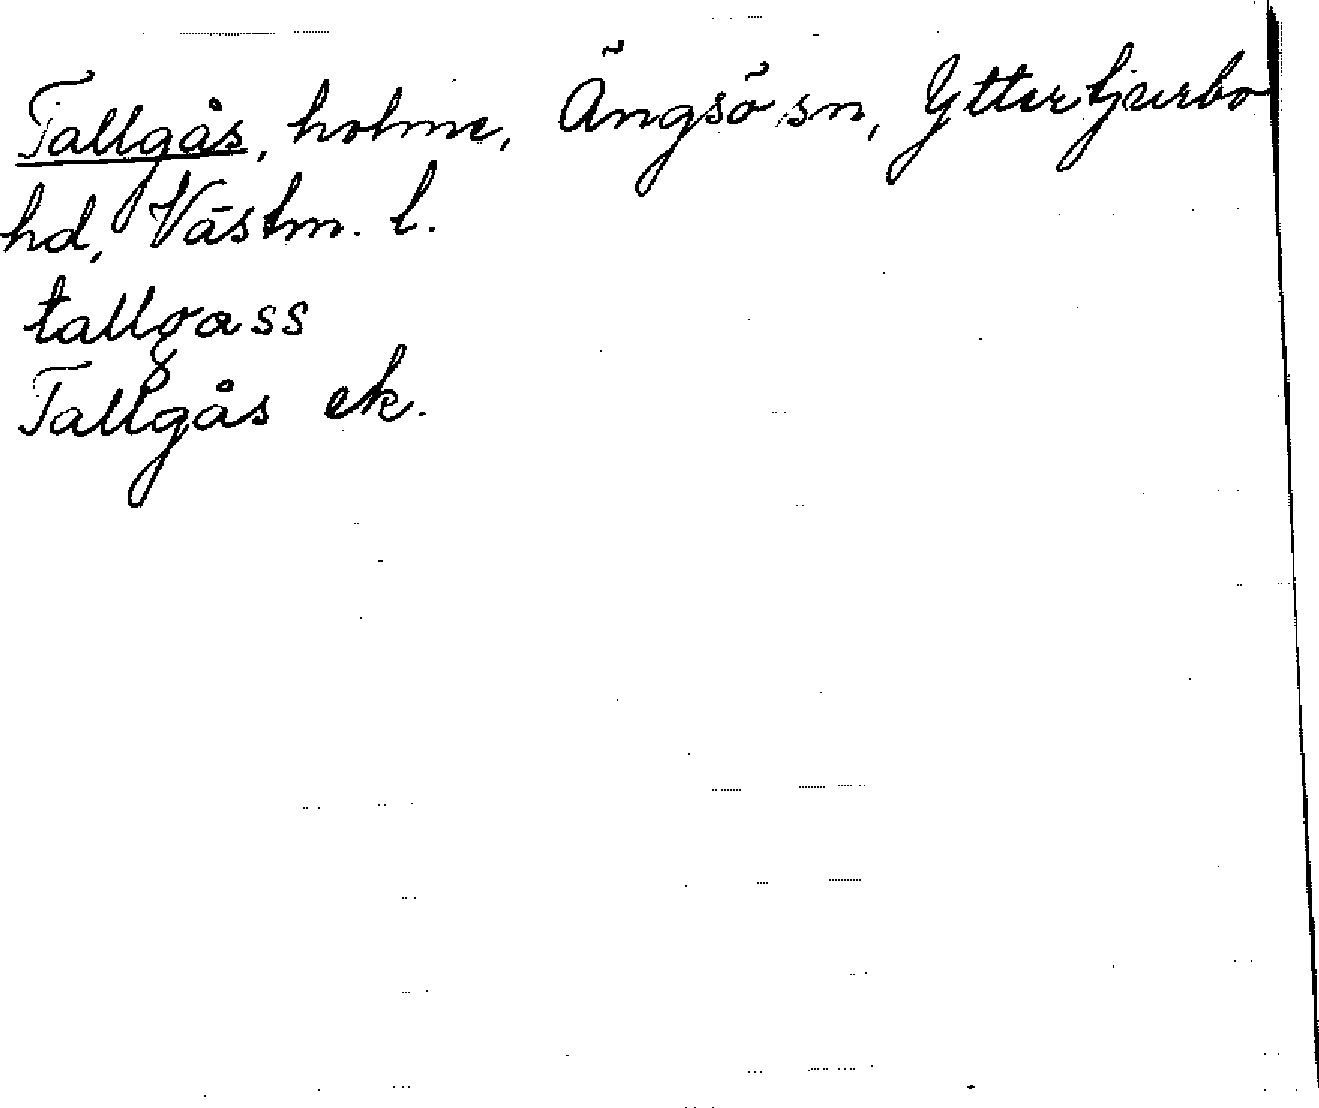 Tallgås, holme, Ängsö sn, Yttertjurbo
hd, Västm. l.
tallgass
Tallgås ek.